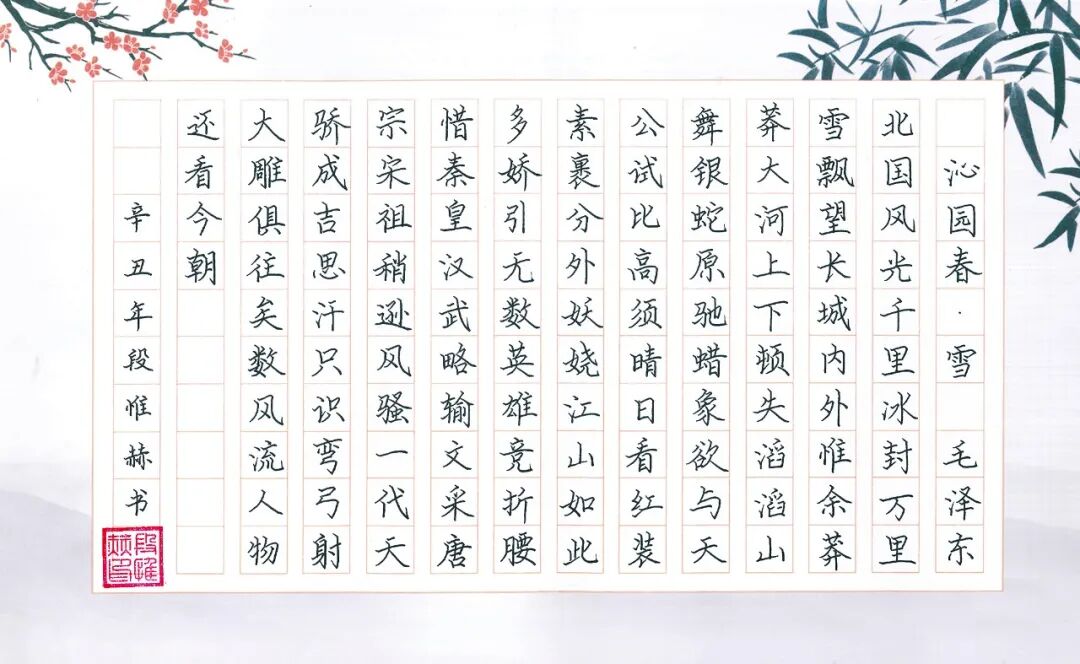 沁园春·雪 毛泽东
北国风光千里冰封万里
雪飘望长城内外惟余莽
莽大河上下顿失滔滔山
舞银蛇原驰蜡象欲与天
公试比高须晴日看红装
素裹分外妖娆江山如此
多娇引无数英雄竞折腰
惜秦皇汉武略输文采唐
宗宋祖稍逊风骚一代天
骄成吉思汗只识弯弓射
大雕俱往矣数风流人物
还看今朝
辛丑年段惟赫书
段惟
赫印